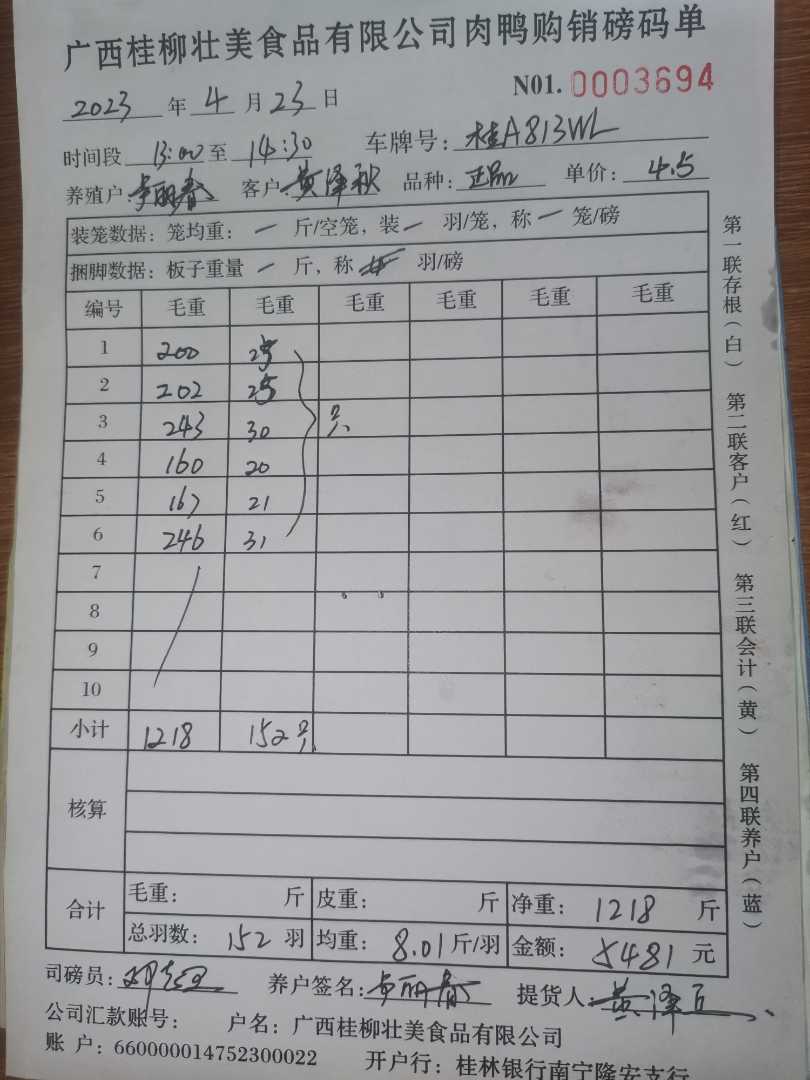 广西桂柳壮美食品有限公司肉鸭购销磅码单
N01. 0003694
2023 年 4 月 23 日
时间段 13:00 至 14:30 车牌号: 桂A813WL
养殖户: 客户: 黄泽秋 品种: 正品 单价: 4.5
装笼数据: 笼均重: 一 斤/空笼, 装 一 羽/笼, 称 一 笼/磅
捆脚数据: 板子重量 一 斤, 称 羽/磅
编号 毛重 毛重 毛重 毛重 毛重 毛重
1 200 25
2 202 25
3 243 30 只
4 160 20
5 167 21
6 246 31
7
8
9
10
小计 1218 152只
核算
合计 毛重: 斤 皮重: 斤 净重: 1218 斤
总羽数: 152 羽 均重: 8.01 斤/羽 金额: 5481 元
司磅员: 养户签名: 提货人:
公司汇款账号: 户名: 广西桂柳壮美食品有限公司
账 户: 660000014752300022 开户行: 桂林银行南宁隆安支行
第一联存根(白) 第二联客户(红) 第三联会计(黄) 第四联养户(蓝)